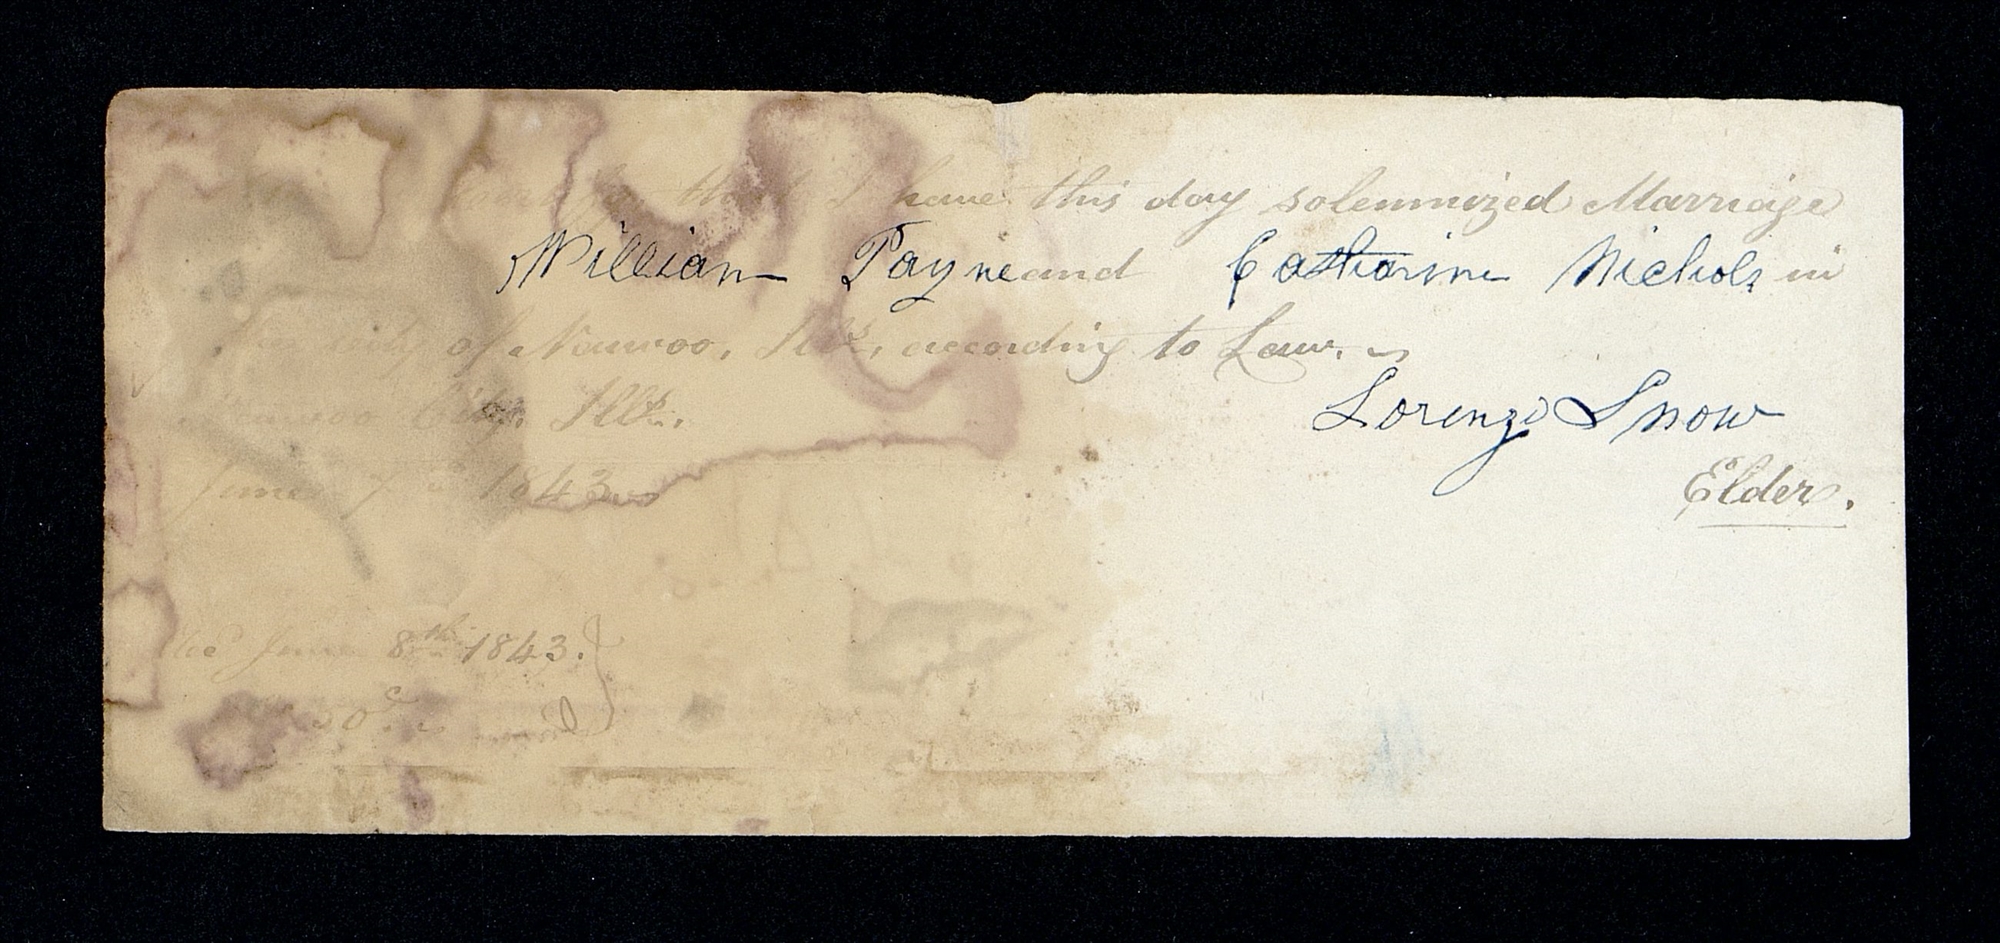 certify that I have this day solemnized Marriage
William Payne and Catharine Nichols in
the city of Nauvoo, Ills, according to Law.
Lorenzo Snow
Nauvoo City, Ills.
Elder.
June 7th 1843
Rec June 8th 1843.